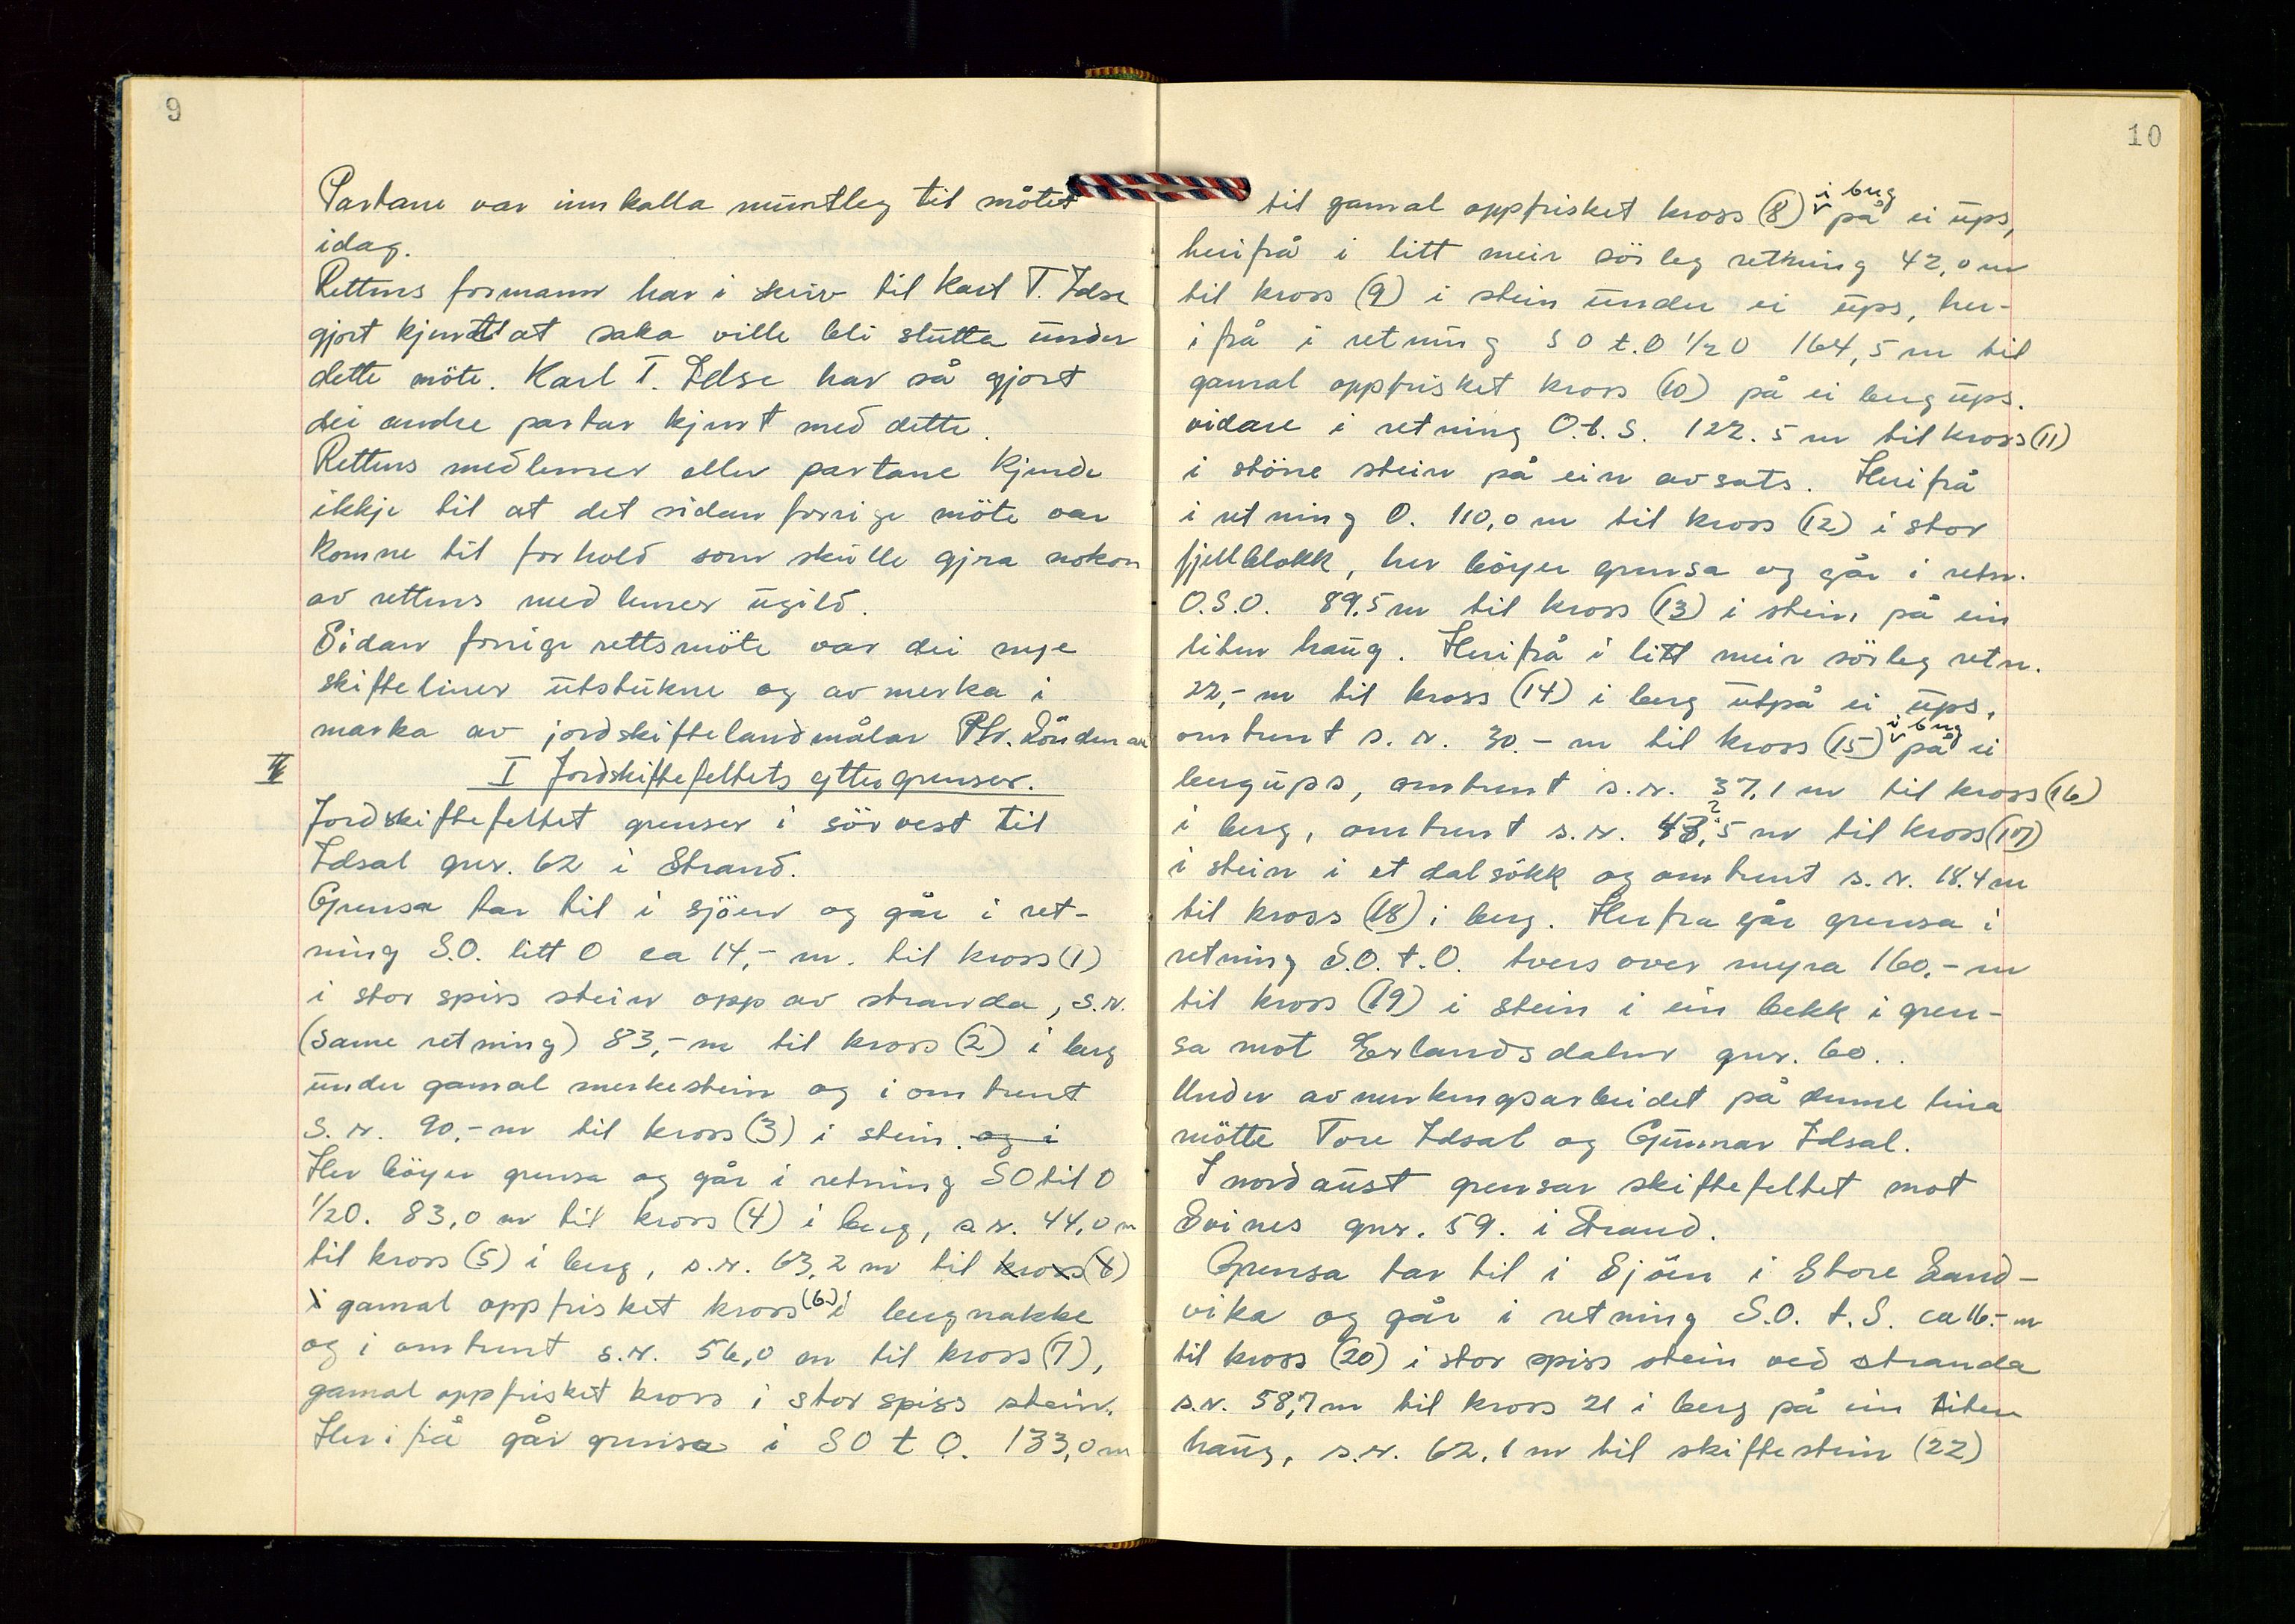 9
Partane var innkalla muntleg til møtet
idag.
Rettens formann har i skriv til Karl T. Idse
gjort kjent at saka ville bli slutta under
dette möte. Karl T. Idse har så gjort
dei andre partar kjent med dette.
Rettens medlemer eller partane kjende
ikkje til at det sidan forrige möte var
komne til forhold som skulle gjra nokon
av rettens medlemer ugild.
Sidan forrige rettsmöte var dei nye
skifteliner utstukne og avmerka i
marka av jordskiftelandmålar
I Jordskiftefeltets yttergrenser.
Jordskiftefeltet grenser i sörvest til
Idsal gnr. 62 i Strand.
Grensa tar til i sjöen og går i ret-
ning S.O. litt O ca 14,- m. til kross (1)
i stor spiss stein opp av stranda, s.r.
(same retning) 83,- m til kross (2) i berg
under gamal merkestein og i omtrent
s.r. 90,- m til kross (3) i stein. og i
Her böyer grensa og går i retning SO til O
1/2O. 83,0 m til kross (4) i berg, s.r. 44,0 m
til kross (5) i berg, s.r. 63,2 m til kross (6)
i gamal oppfrisket kross (6) i bergnakke
og i omtrent s.r. 56,0 m til kross (7),
gamal oppfrisket kross i stor spiss stein.
Herifrå går grensa i SO t O. 133,0 m
10
til gamal oppfrisket kross (8) i berg på ei ups,
herifrå i litt meir sörleg retning 42,0 m
til kross (9) i stein under ei ups, her-
ifrå i retning S O t. O 1/2 O 164,5 m til
gamal oppfrisket kross (10) på ei berg ups.
vidare i retning O.t.S. 122.5 m til kross (11)
i störe stein på ein avsats. Herifrå
i retning O. 110,0 m til kross (12) i stor
fjellblokk, her böyer grensa og går i retn.
O.S.O. 89,5 m til kross (13) i stein på ein
liten haug. Herifrå i litt meir sörleg retn.
22,- m til kross (14) i berg utpå ei ups,
omtrent s.r. 30.- m til kross (15) i berg på ei
bergups, omtrent s.r. 37,1 m til kross (16)
i berg, omtrent s.r. 42,5 m til kross (17)
i stein i et dalsökk og omtrent s.r. 18.4 m
til kross (18) i berg. Herfra går grensa i
retning S.O. t. O. tvers over myra 160,- m
til kross (19) i stein i ein bekk i gren-
sa mot Erlandsdalen gnr. 60.
Under avmerkingsarbeidet på denne lina
mötte Tore Idsal og Gunnar Idsal.
I nordaust grensar skiftefeltet mot
Svines gnr. 59. i Strand.
Grensa tar til i Sjöen i Store Sand-
vika og går i retning S.O. t. S. ca 16.- m
til kross (20) i stor spiss stein ved stranda
s.r. 58,7 m til kross 21 i berg på ein liten
haug, s.r. 62,1 m til skiftestein (22)